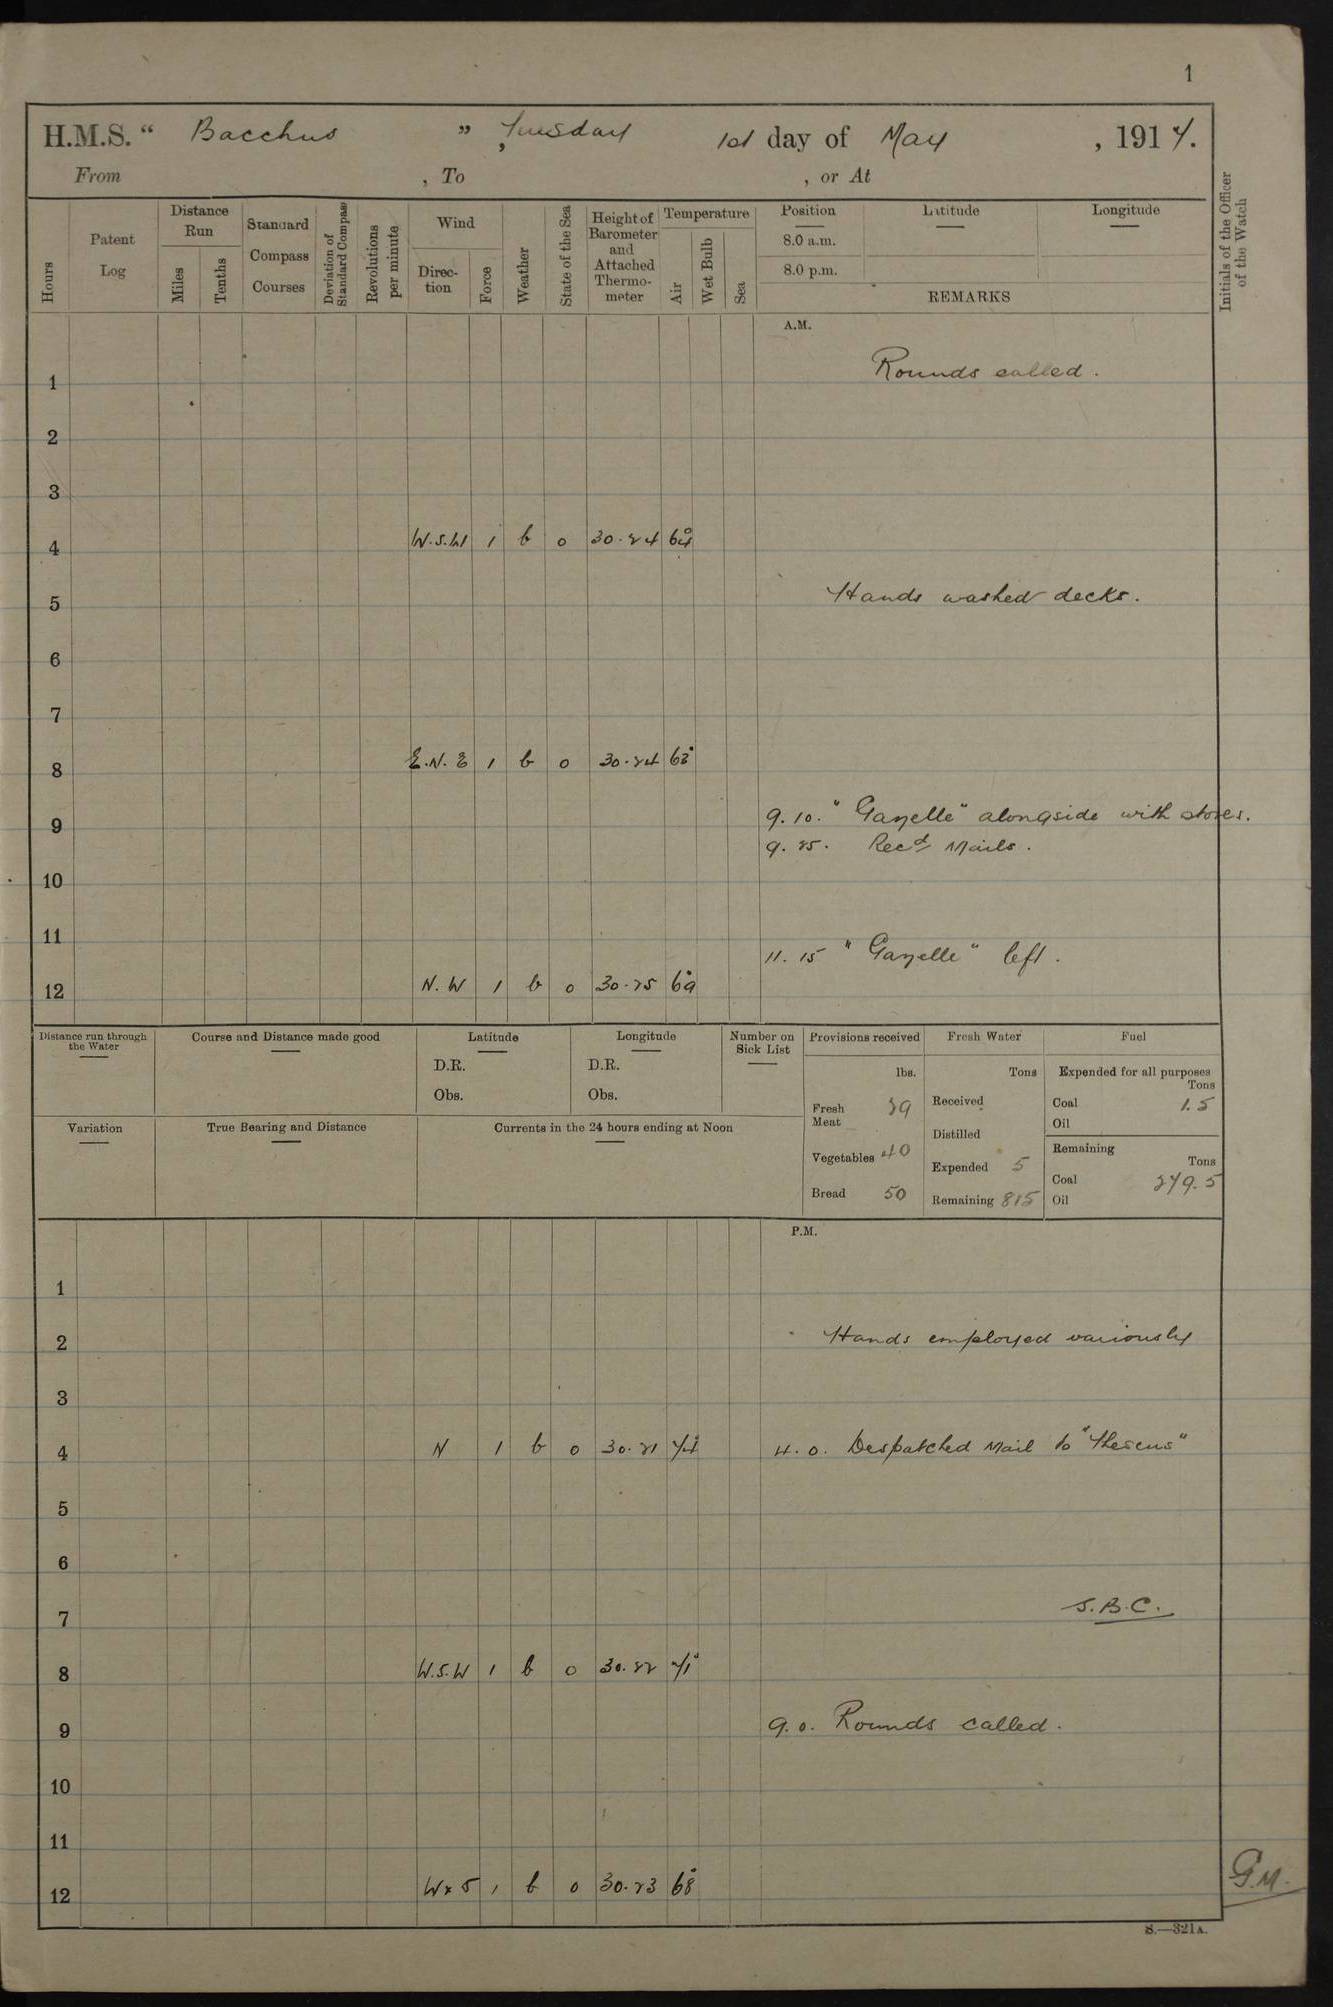 1
H.M.S. “ Bacchus ” , Tuesday 1st day of May , 1917.
From , To , or At
Hours
Patent Log
Distance Run
Miles
Tenths
Standard Compass Courses
Deviation of Standard Compass
Revolutions per minute
Wind
Direc-tion
Force
Weather
State of the Sea
Height of Barometer and Attached Thermo-meter
Temperature
Air
Wet Bulb
Sea
Position Latitude Longitude
8.0 a.m.
8.0 p.m.
REMARKS
Initials of the Officer of the Watch
A.M.
1 Rounds called.
2
3
4 W.S.W 1 b 0 30.24 64°
5 Hands washed decks.
6
7
8 E.N.E 1 b 0 30.24 63°
9 9.10. "Gazelle" alongside with stores.
9.25. Recd Mails.
10
11 11.15 "Gazelle" left.
12 N.W 1 b 0 30.25 69°
Distance run through the Water
Course and Distance made good
Latitude
D.R.
Obs.
Longitude
D.R.
Obs.
Number on Sick List
Provisions received
lbs.
Fresh Meat 39
Vegetables 40
Bread 50
Fresh Water
Tons
Received
Distilled
Expended 5
Remaining 815
Fuel
Expended for all purposes
Tons
Coal 1.5
Oil
Remaining
Tons
Coal 279.5
Oil
Variation
True Bearing and Distance
Currents in the 24 hours ending at Noon
P.M.
1
2 Hands employed variously
3
4 N 1 b 0 30.21 74° 4.0. Despatched Mail to "Theseus"
5
6
7 S.B.C.
8 W.S.W 1 b 0 30.22 71°
9 9.0. Rounds called.
10
11
12 W x S 1 b 0 30.23 68° G.M.
S.—321A.